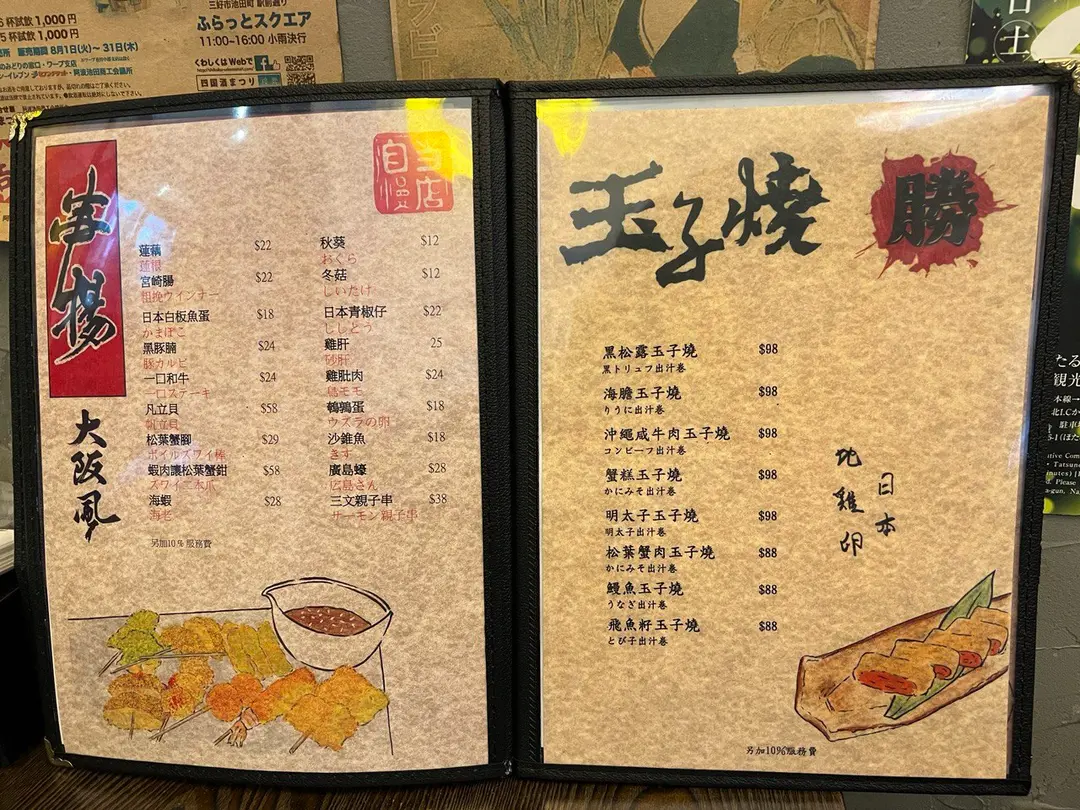 6杯試飲 1,000円
5杯試飲 1,000円
販売期間 8月1日(火)～31日(木)
三好市池田町 駅前通り
ふらっとスクエア
11:00~16:00 小雨決行
くわしくはWebで
四国酒まつり
串揚
大阪風
当店
自慢
蓮藕 $22
蓮根
宮崎腸 $22
粗挽ウインナー
日本白板魚蛋 $18
かまぼこ
黑豚腩 $24
豚カルビ
一口和牛 $24
一口ステーキ
凡立貝 $58
帆立貝
松葉蟹腳 $29
ボイルズワイ棒
蝦肉讓松葉蟹鉗 $58
ズワイ二本爪
海蝦 $28
海老
另加10% 服務費
秋葵 $12
おくら
冬菇 $12
しいたけ
日本青椒仔 $22
ししとう
雞肝 25
砂肝
雞肶肉 $24
鳥モモ
鵪鶉蛋 $18
ウズラの卵
沙錐魚 $18
きす
廣島蠔 $28
広島さん
三文親子串 $38
サーモン親子串
玉子燒
勝
黑松露玉子燒 $98
黒トリュフ出汁巻
海膽玉子燒 $98
りうに出汁巻
沖繩咸牛肉玉子燒 $98
コンビーフ出汁巻
蟹糕玉子燒 $98
かにみそ出汁巻
明太子玉子燒 $98
明太子出汁巻
松葉蟹肉玉子燒 $88
かにみそ出汁巻
鰻魚玉子燒 $88
うなぎ出汁巻
飛魚籽玉子燒 $88
とび子出汁巻
日本
地雞卵
另加10%服務費
土
たる
観光